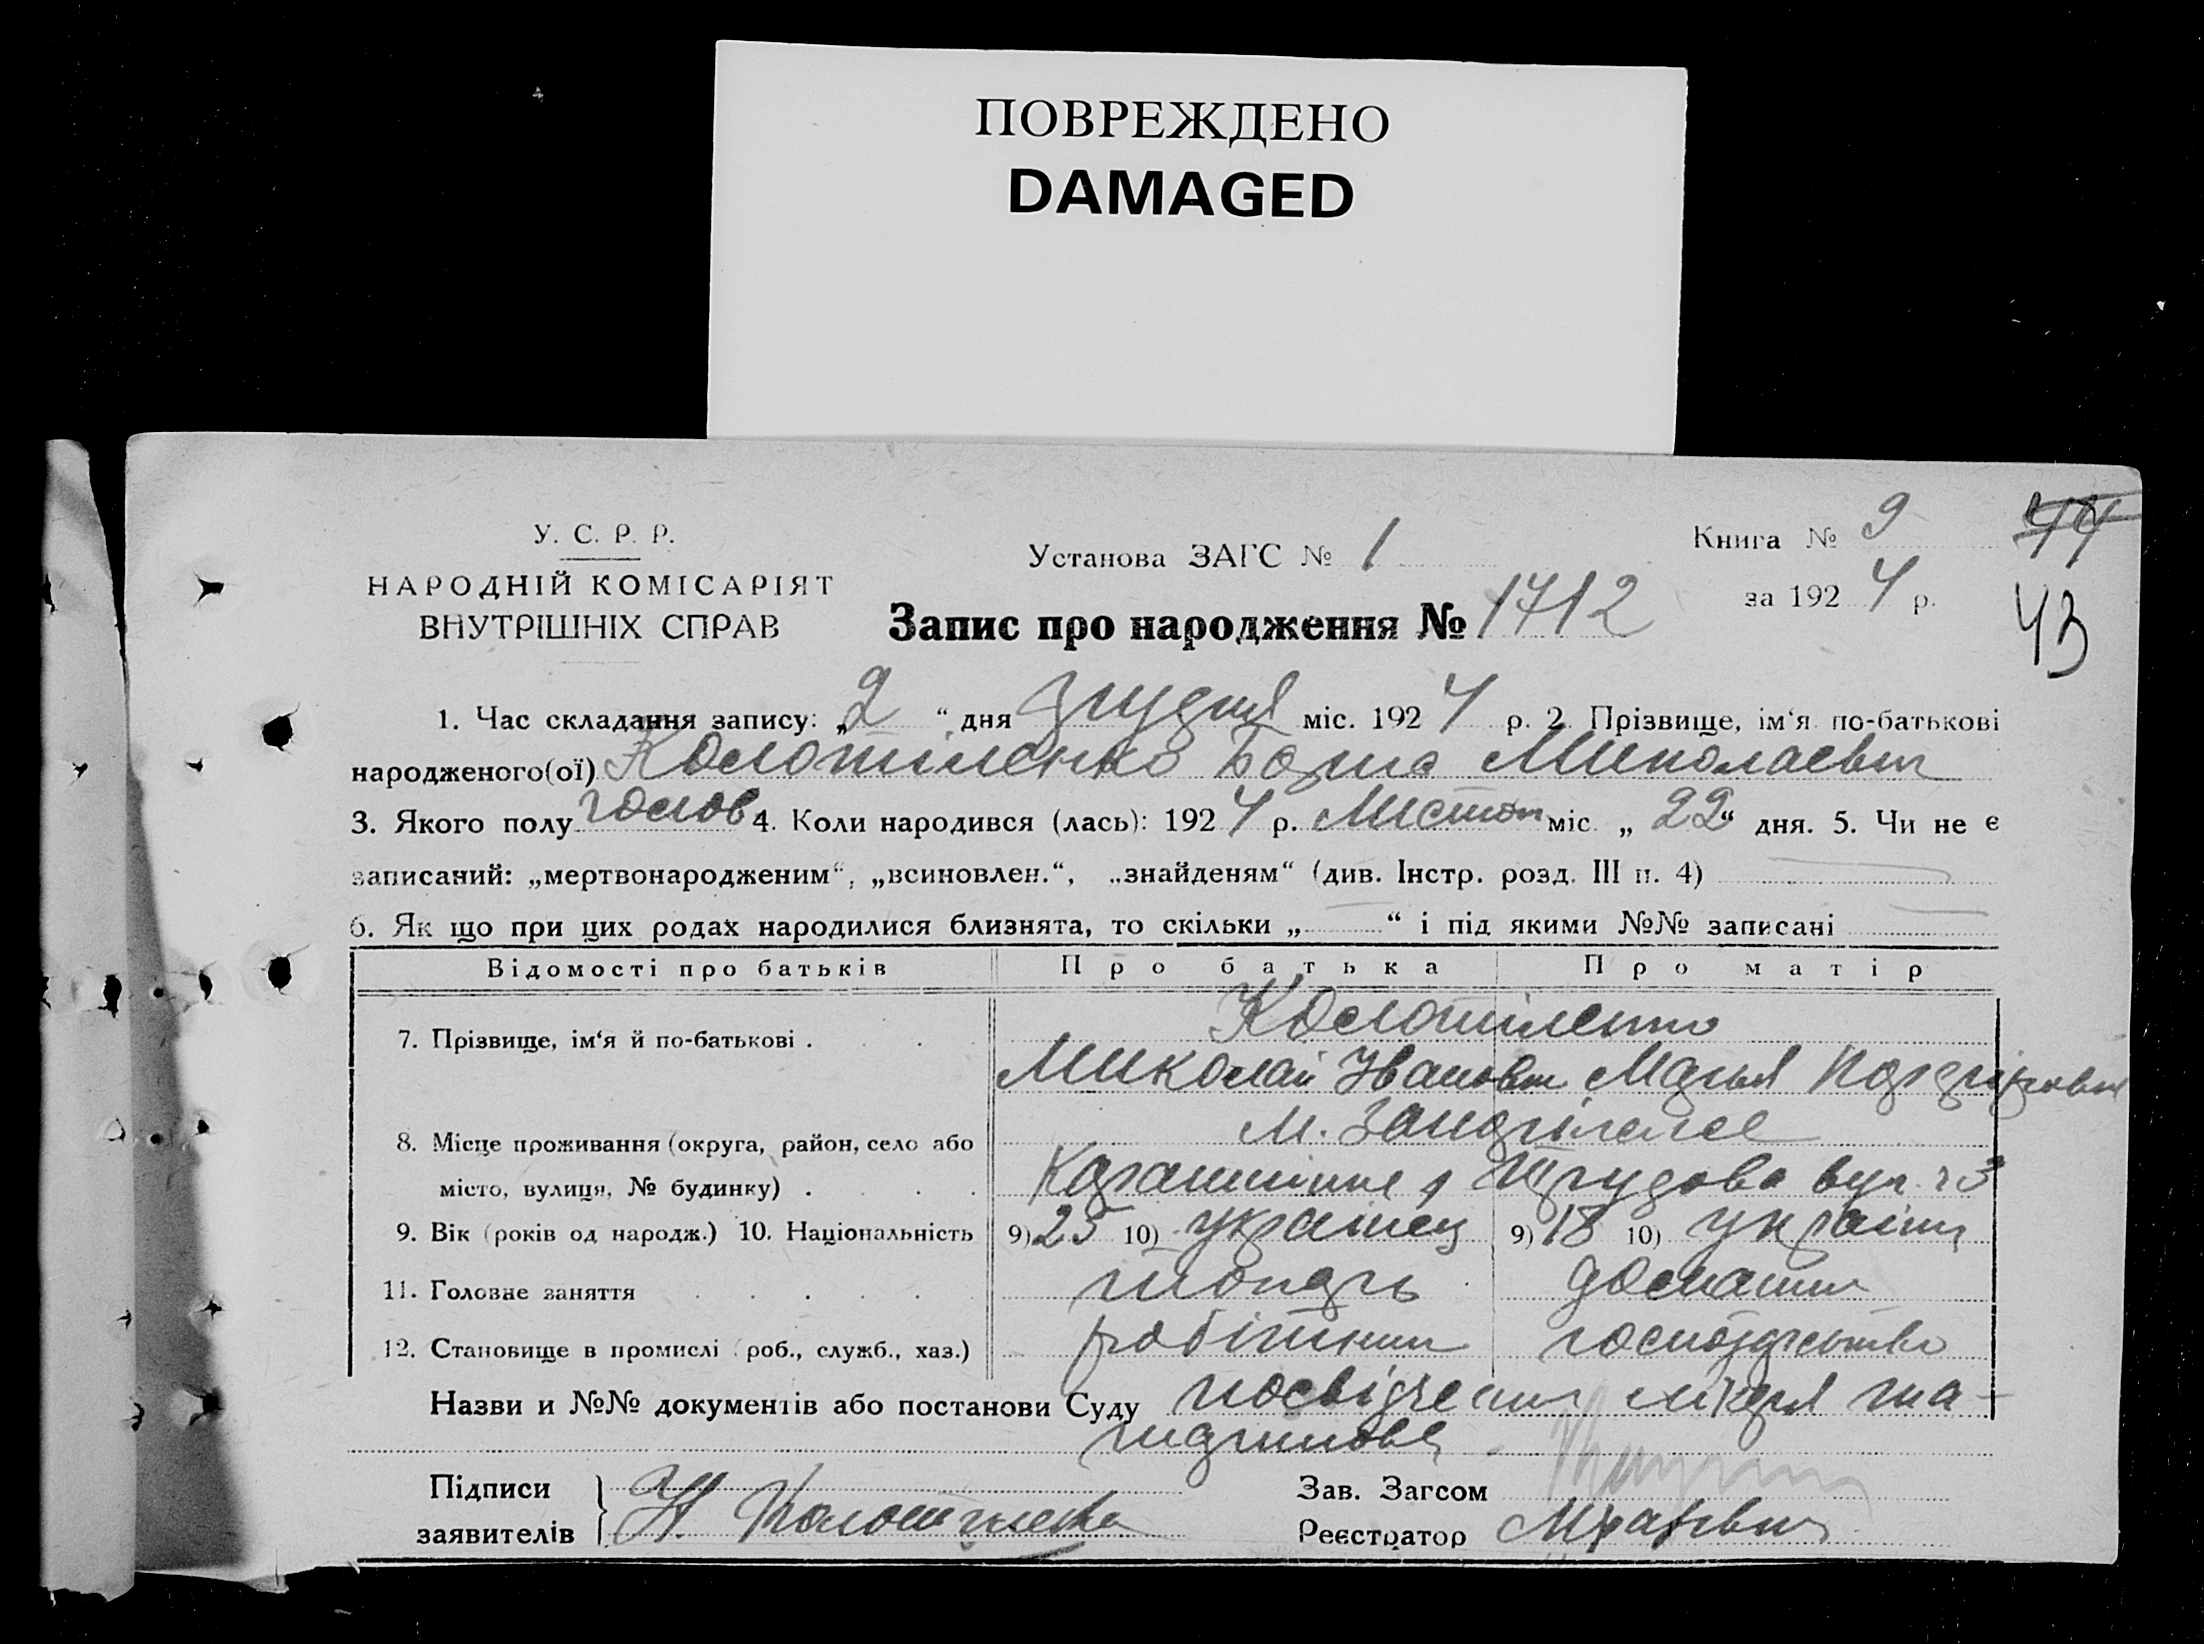 ПОВРЕЖДЕНО
DAMAGED
У. С. Р. Р.
НАРОДНІЙ КОМІСАРІЯТ
ВНУТРІШНІХ СПРАВ
Установа ЗАГС № 1
Запис про народження № 1712
Книга № 9
за 1924 р.
44
43
1. Час складання запису: „2“ дня грудня міс. 1924 р. 2. Прізвище, ім‘я по-батькові
народженого(ої) Колотіленко Миколаевич
3. Якого полу голов 4. Коли народився (лась): 1924 р. Листоп міс. „22“ дня. 5. Чи не є
записаний: „мертвонародженим“, „всиновлен.“, „знайденям“ (див. Інстр. розд. III п. 4)
6. Як що при цих родах народилися близнята, то скільки „ “ і під якими №№ записані
Відомості про батьків Про батька Про матір
7. Прізвище, ім‘я й по-батькові . . . Колотіленко
Миколай Іванович Марья
8. Місце проживання (округа, район, село або м.
місто, вулиця, № будинку) . . . . Трудова вул. 3
9. Вік (років од народж.) 10. Національність 9) 25 10) українец 9) 18 10) україн
11. Головне заняття . . . . . токарь домашн
12. Становище в промислі (роб., служб., хаз.) робітник господарство
Назви и №№ документів або постанови Суду посвідчення лікаря та
Підписи
заявителів Н. Колотіленко
Зав. Загсом
Реєстратор